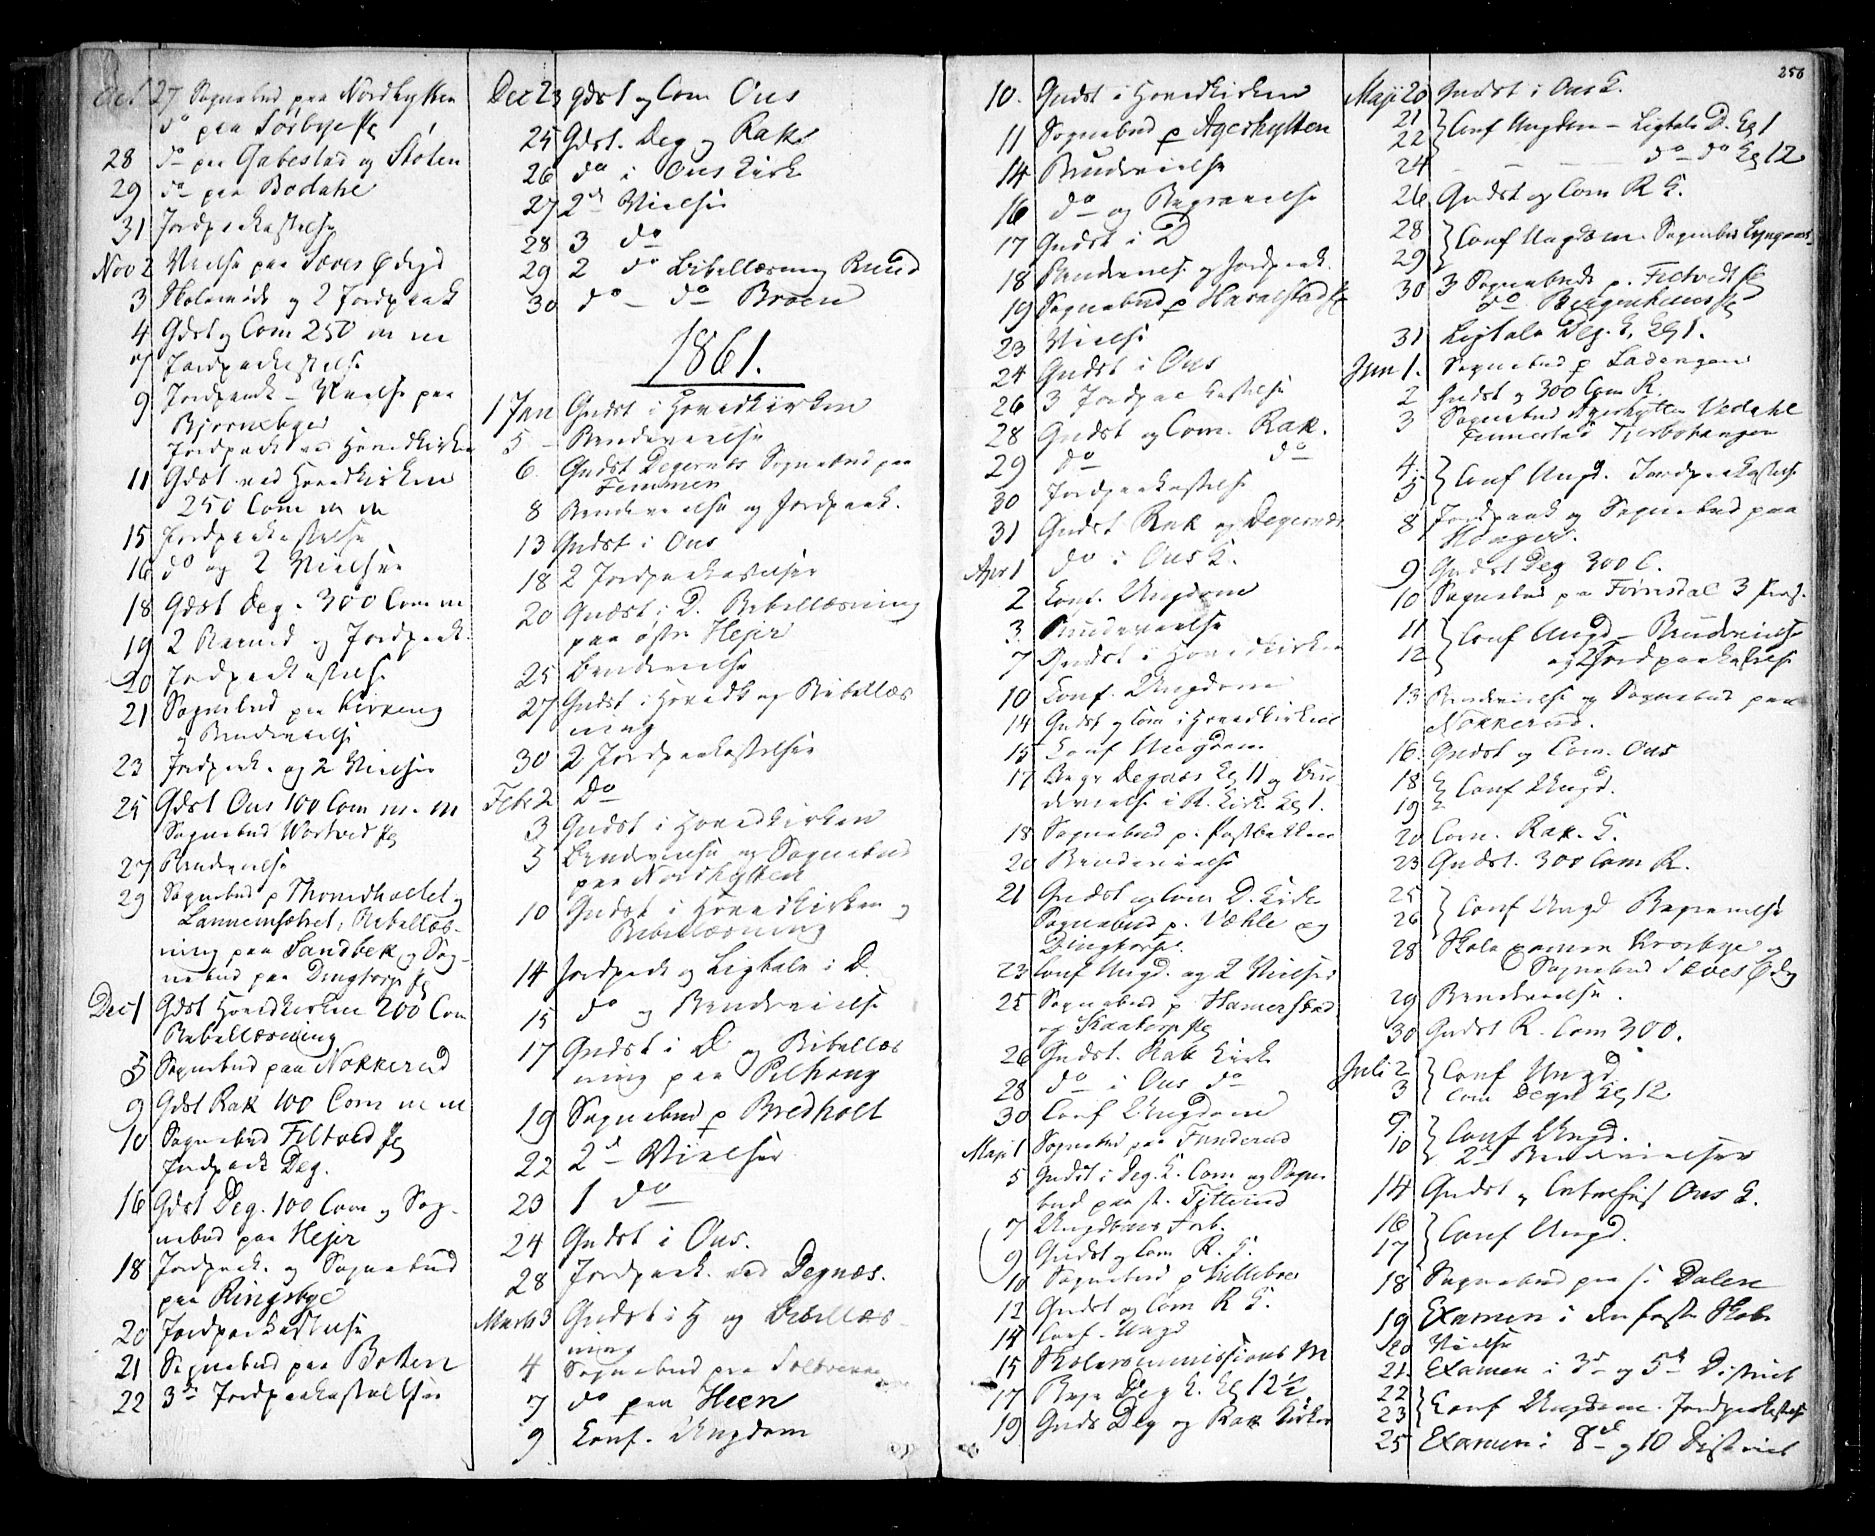 Oct 27 Sognebud paa Nordhytten
do paa Sørbye Pl
28 do paa Gabestad og Stöten
29 do paa Bodahl
31 Jordpaakastelse
Nov 2 Vielse paa Sæves Ødegd
3 Skolemöde og 2 Jordpaak
4 Gdst og Com 250 m m
7 Jordpaakastelse
9 Jordpaak – Vielse paa
Bjørneby
Jordpaak ved Hovedkirken
11 Gdst ved Hovedkirken
250 Com m m
15 Jordpaakastelse
16 do og 2 Vielser
18 Gdst Deg. 300 Com m
19 2 og Jordpaak.
20 Jordpaakastelse
21 Sognebud paa Kirkeng
og Brudevielse
23 Jordpaak. og 2 Vielser
25 Gdst Ous 100 Com m. m
Sognebud Wortved Pl
27 Brudevielse
29 Sognebud p Thomesholtet og
Lannemsætret, Bibellæs-
ning paa Sandbek og Sog-
nebud paa Dingtorp Pl
Dec 1 Gdst Hovedkirken 200 Com
Bibellæsning
5 Sognebud paa Nokkerud
9 Gdst Rak 100 Com m m
10 Sognebud Filtved Pl
Jordpaak Deg.
16 Gdst Deg. 100 Com og Sog-
nebud paa Hejer
18 Jordpaak. og Sognebud
paa Ringsbye
20 Jordpaakastelse
21 Sognebud paa Botten
22 3de Jordpaakastelser
Dec 23 Gdst og Com Ous
25 Gdst. Deg og Rak
26 do i Ous Kirk
27 2de Vielser
28 3 do
29 2 do Bibellæsning Ruud
30 do – do Braen
1861.
1 Jan Gudst i Hovedkirken
5 – Brudevielse
6 Gudst Degernes Sognebud paa
Femmen
8 Brudevielse og Jordpaak.
13 Gudst i Ous
18 2 Jordpaakastelser
20 Gudst i D. Bibellæsning
paa østre Hejer
25 Brudevielse
27 Gudst i Hovedk og Bibellæs
ning
30 2 Jordpaakastelser
Febr 2 Do
3 Gudst i Hovedkirken
5 Brudevielse og Sognebud
paa Nordhytten
10 Gudst i Hovedkirken og
Bibellæsning
14 Jordpaak og Ligtale i D.
15 do og Brudevielse
17 Gudst i D og Bibellæs
ning paa Pilhaug
19 Sognebud p Bredholt
22 2de Vielser
23 1 do
24 Gudst i Ous.
28 Jordpaak. ved Degnæs.
Marts 3 Gudst i H og Bibellæs-
ning
4 Sognebud paa
7 do paa Heen
9 Conf. Ungdom
10. Gudst i Hovedkirken
11 Sognebud p Agerhytten
14 Brudevielse
16 do og Begravelse
17 Gudst i D
18 Brudeviels. og Jordpaak.
19 Sognebud p Haralstad Pl
23 Vielse
24 Gudst i Ous
26 3 Jordpaakastelse
28 Gudst og Com. Rak.
29 do do
30 Jordpaakastelse
31 Gudst Rak og Degernæs
Apr 1 do i Ous K.
2 Conf. Ungdom
3. Brudevielse
7 Gudst i Hovedkirken
10 Conf. Ungdom
14 Gudst og Com i Hovedkirken
15 Conf Ungdom
17 Begr Degnæs Kl 11 og Bru
devielse i R. Kirk. Kl 1.
18 Sognebud p. Postbakken
20 Brudevielse
21 Gudst og Com D. Kirk
Sognebud p. Væhle og
Dingtorp.
23 Conf Ungd. og 2 Vielser
25 Sognebud p Hamerstad
og Kaatorp Pl
26 Gudst. Rak Kirk
28 do i Ous do
30 Conf Ungdom
Maji 1 Sognebud paa Funderud
5 Gudst i Deg. K. Com og Sogne
bud paa st. Titterud
7 Ungdoms Forb.
9 Gudst og Com R. K.
10 Sognebud p Lillebroe
12 Gudst og Com R K.
14 Conf. Ungd
15 Skolecommissions M
17 Begr Deg K. Kl 12½
19 Guds Deg og Rak Kirker
256
Maji 20 Gudst i Ous K.
21
22 } Conf Ungdom – Ligtale D. Kl 1
24 – – do – do Kl 12
26 Gudst og Com R K.
28
29 } Conf Ungdom. Sognebud
30 3 Sognebude p. Filtvedt Pl
do Bergenhuus Pl
31 Ligtale Deg. K. Kl 1.
Jun 1. Sognebud p Ladengen
2 Gudst og 300 Com R.
3 Sognebud Agerhytten Vedahl
Finnestad Tjerbohaugen
4.
5 } Conf Ungd. Jordpaakastelse
8 Jordpaak og Sognebud paa
Hauger.
9 Gudst Deg 300 C.
10 Sognebud paa Førrisdal 3 Pers.
11
12 } Conf Ungd – Brudevielse
og 2 Jordpaakastelse
13 Brudevielse og Sognebud paa
Nokkerud.
16. Gudst og Com. Ous
18
19 } Conf Ungd.
20 Com. Rak. K.
23 Gudst. 300 Com R.
25
26 } Conf Ungd Begravelse
28 Skole examen Krosbye og
Sognebud Sæves Ødeg
29 Brudevielse.
30 Gudst R. Com 300.
Juli 2
3 } Conf Ungd
Com Degn Kl 12
9.
10 } Conf Ungd.
2de Brudevielser
14 Gudst og Ous K.
16
17 } Conf Ungd.
18 Sognebud paa s. Dalen
19 Examen i den faste Skole
20 Vielse
21. Examen i 3de og 5te District
22
23 } Conf Ungdom. Jordpaakastelse
25 Examen i 8de og 10 District